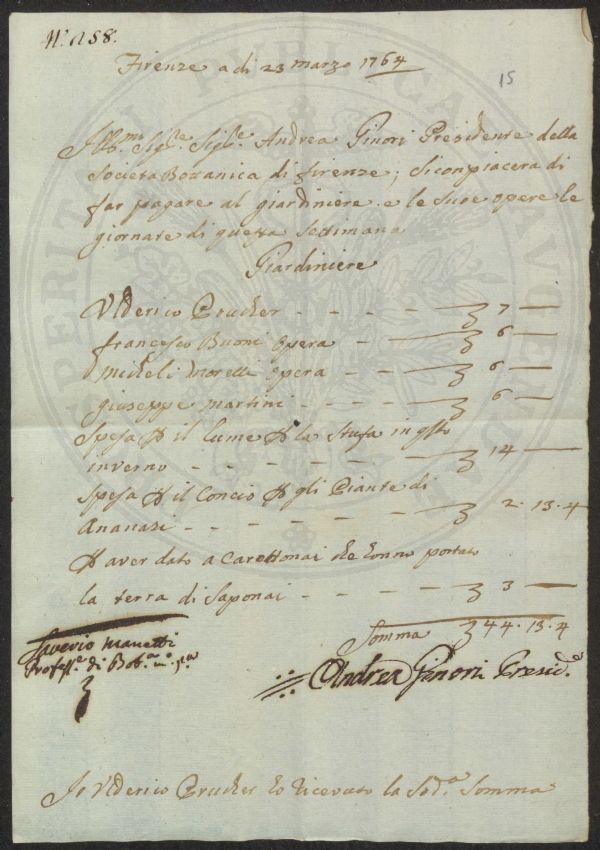 N.° 258.
Firenze a di 23 marzo 1764
15
Ill.mo Sig.re Sig.re Andrea Ginori Presidente della
Societa Bottanica di firenze; Si conpiacera di
far pagare al giardiniere e le sue opere le
giornate di questa settimana
Giardiniere
Vlderico Prucker - - - - 7 —
francesco Buoni opera - 6 —
Micheli Moretti opera - - 6 —
giuseppe martini - - - - 6 —
Spesa il lume la stufa in qsto
inverno - - - - - - - 14 —
Spesa il Concio gli Piante di
Ananasi - - - - - - 2.13.4
aver dato a Carettonai che honno portato
la terra di Saponai - - - - 3 —
Somma 44.13.4
Saverio Manetti
Profess.e di Bot.a m.o p.a
Andrea Ginori Presid.e
Io Vlderico Prucker ho ricevuto la Sod.a Somma